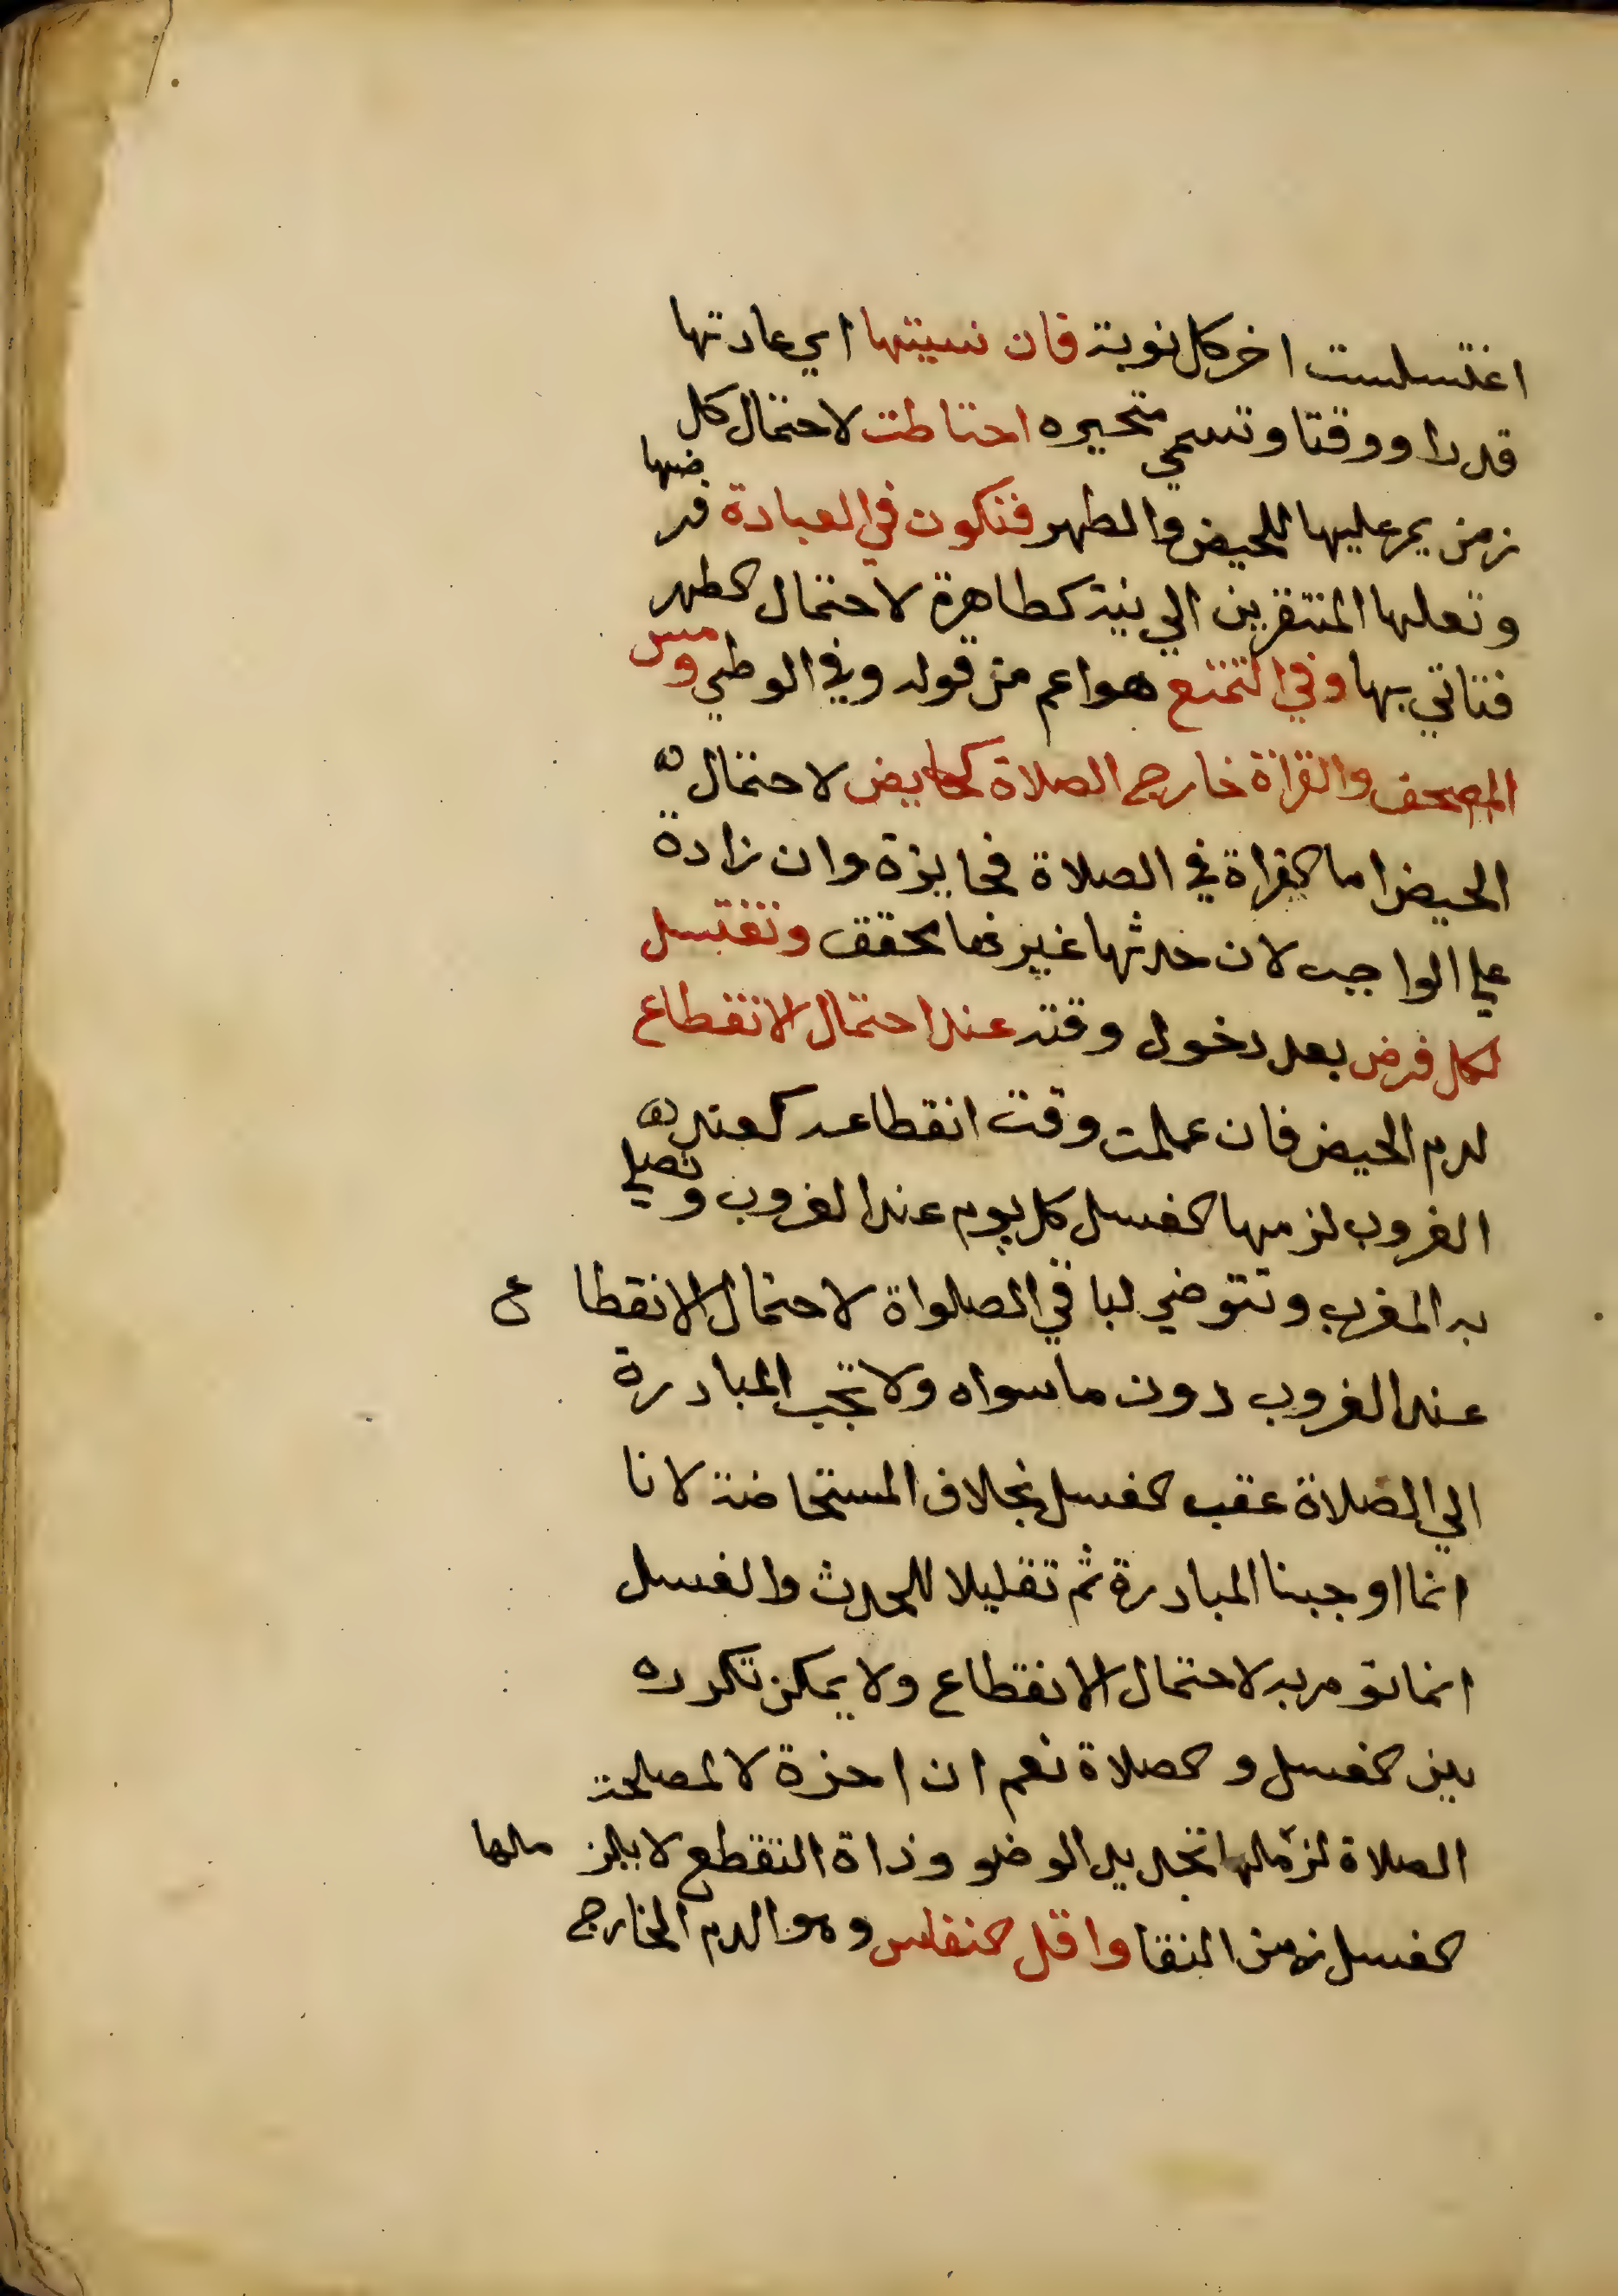 اغتسلست اخر كل نوبة فان نسيتها اي عادتها
قدرا ووقتا وتسمى متحيره احتاطت لاحتمال كل
زمن يمر عليها للحيض والطهر فتكون في العبادة فرضها
ونعلها المنتقرين الي نية كطاهرة لاحتمال الطهر
فتاتي بها وفي التمتع هو اعم من قوله وفي الوطي ومس
المصحف والقراة خارج الصلاة كحايض لاحتمال
الحيض اما القراة في الصلاة فجايزة وان زادة
علي الواجب لان حدثها غير محقق وتغتسل
لكل فرض بعد دخول وقته عند احتمال الانقطاع
لدم الحيض فان عملت وقت انقطاعه كعند
الغروب لزمها الغسل كل يوم عند الغروب وتصلي
به المغرب وتتوضي لباقي الصلواة لاحتمال الانقطاع
عند الغروب دون ما سواه ولا تجب المبادرة
الي الصلاة عقب الغسل بخلاف المستحاضة لانا
انما اوجبنا المبادرة ثم تقليلا للحدث والغسل
انما تومر به لاحتمال الانقطاع ولا يمكن تكرره
بين الغسل والصلاة نعم ان اخرة لا لمصلحة
الصلاة لزمها تجديد الوضو وذاة التقطع لا يلزمها
الغسل زمن النقا واقل النفاس وهو الدم الخارج